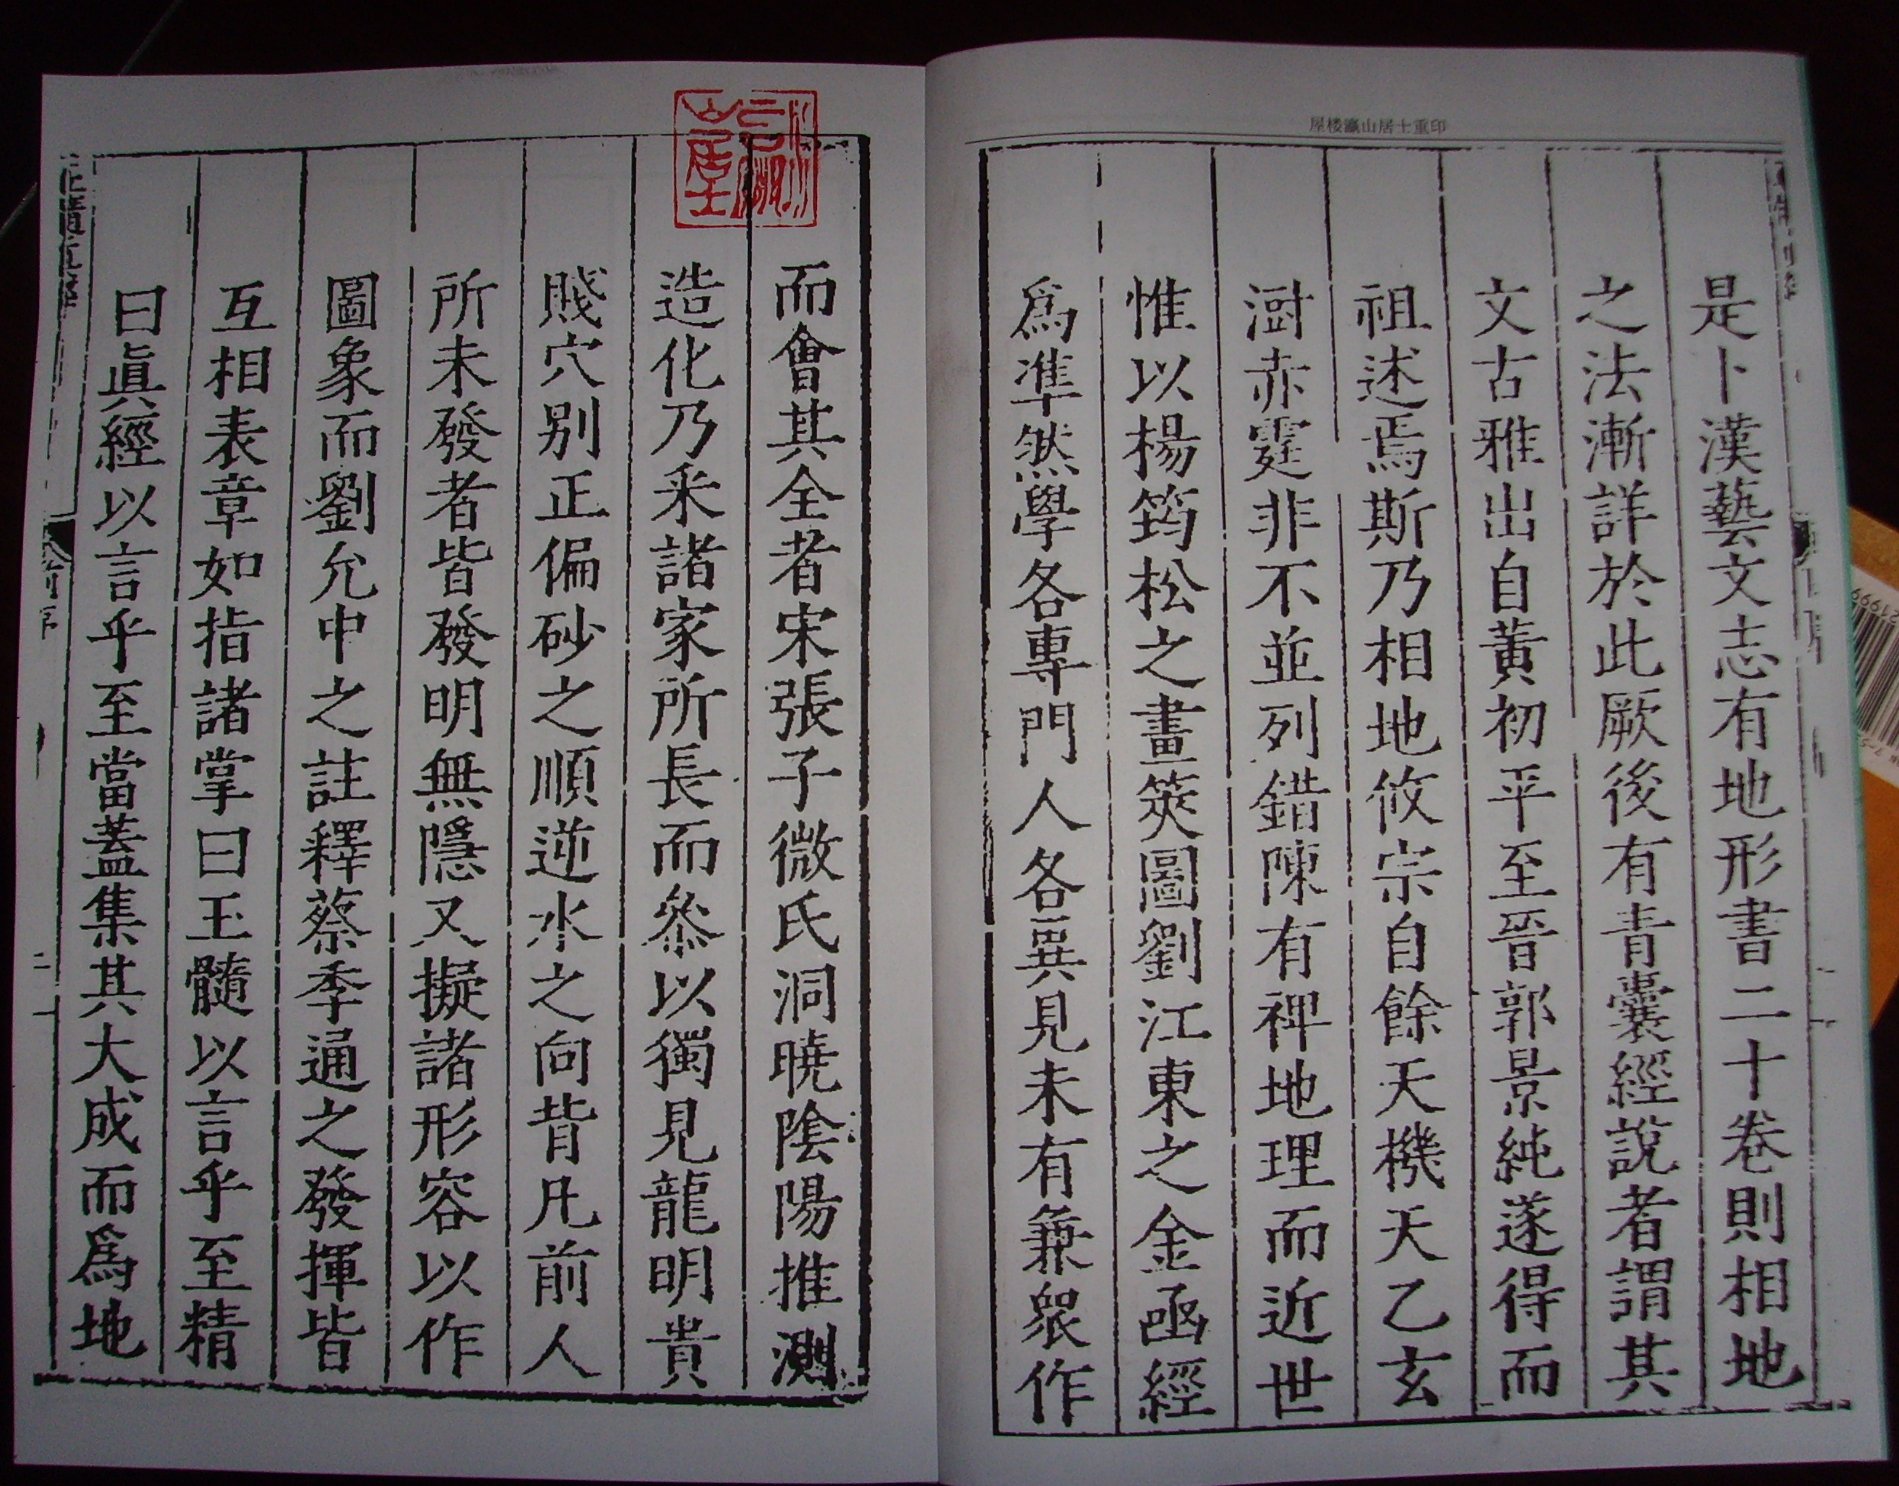 印重士居山瀛楼屋
是卜漢藝文志有地形書二十卷則相地
之法漸詳於此厥後有青囊經說者謂其
文古雅出自黃初平至晉郭景純遂得而
祖述焉斯乃相地攸宗自餘天機天乙玄
澍赤霆非不並列錯陳有裨地理而近世
惟以楊筠松之畫筴圖劉江東之金函經
為準然學各專門人各異見未有兼衆作
而會其全者宋張子微氏洞曉陰陽推測
造化乃采諸家所長而叅以獨見龍明貴
賤穴别正偏砂之順逆水之向背凡前人
所未發者皆發明無隱又擬諸形容以作
圖象而劉允中之註釋蔡季通之發揮皆
互相表章如指諸掌曰玉髓以言乎至精
曰眞經以言乎至當蓋集其大成而爲地